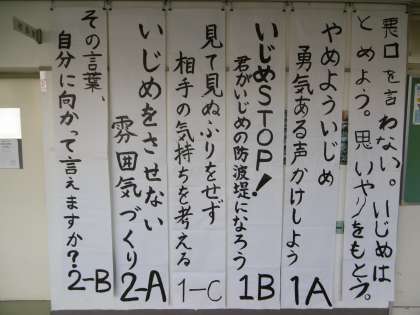 悪口を言わない。いじめは
とめよう。思いやりをもとう。
やめよういじめ
勇気ある声かけしよう
1A
いじめSTOP!
君がいじめの防波堤になろう
1B
見て見ぬふりをせず
相手の気持ちを考える
1-C
いじめをさせない
雰囲気づくり
2-A
その言葉、
自分に向かって言えますか?
2-B